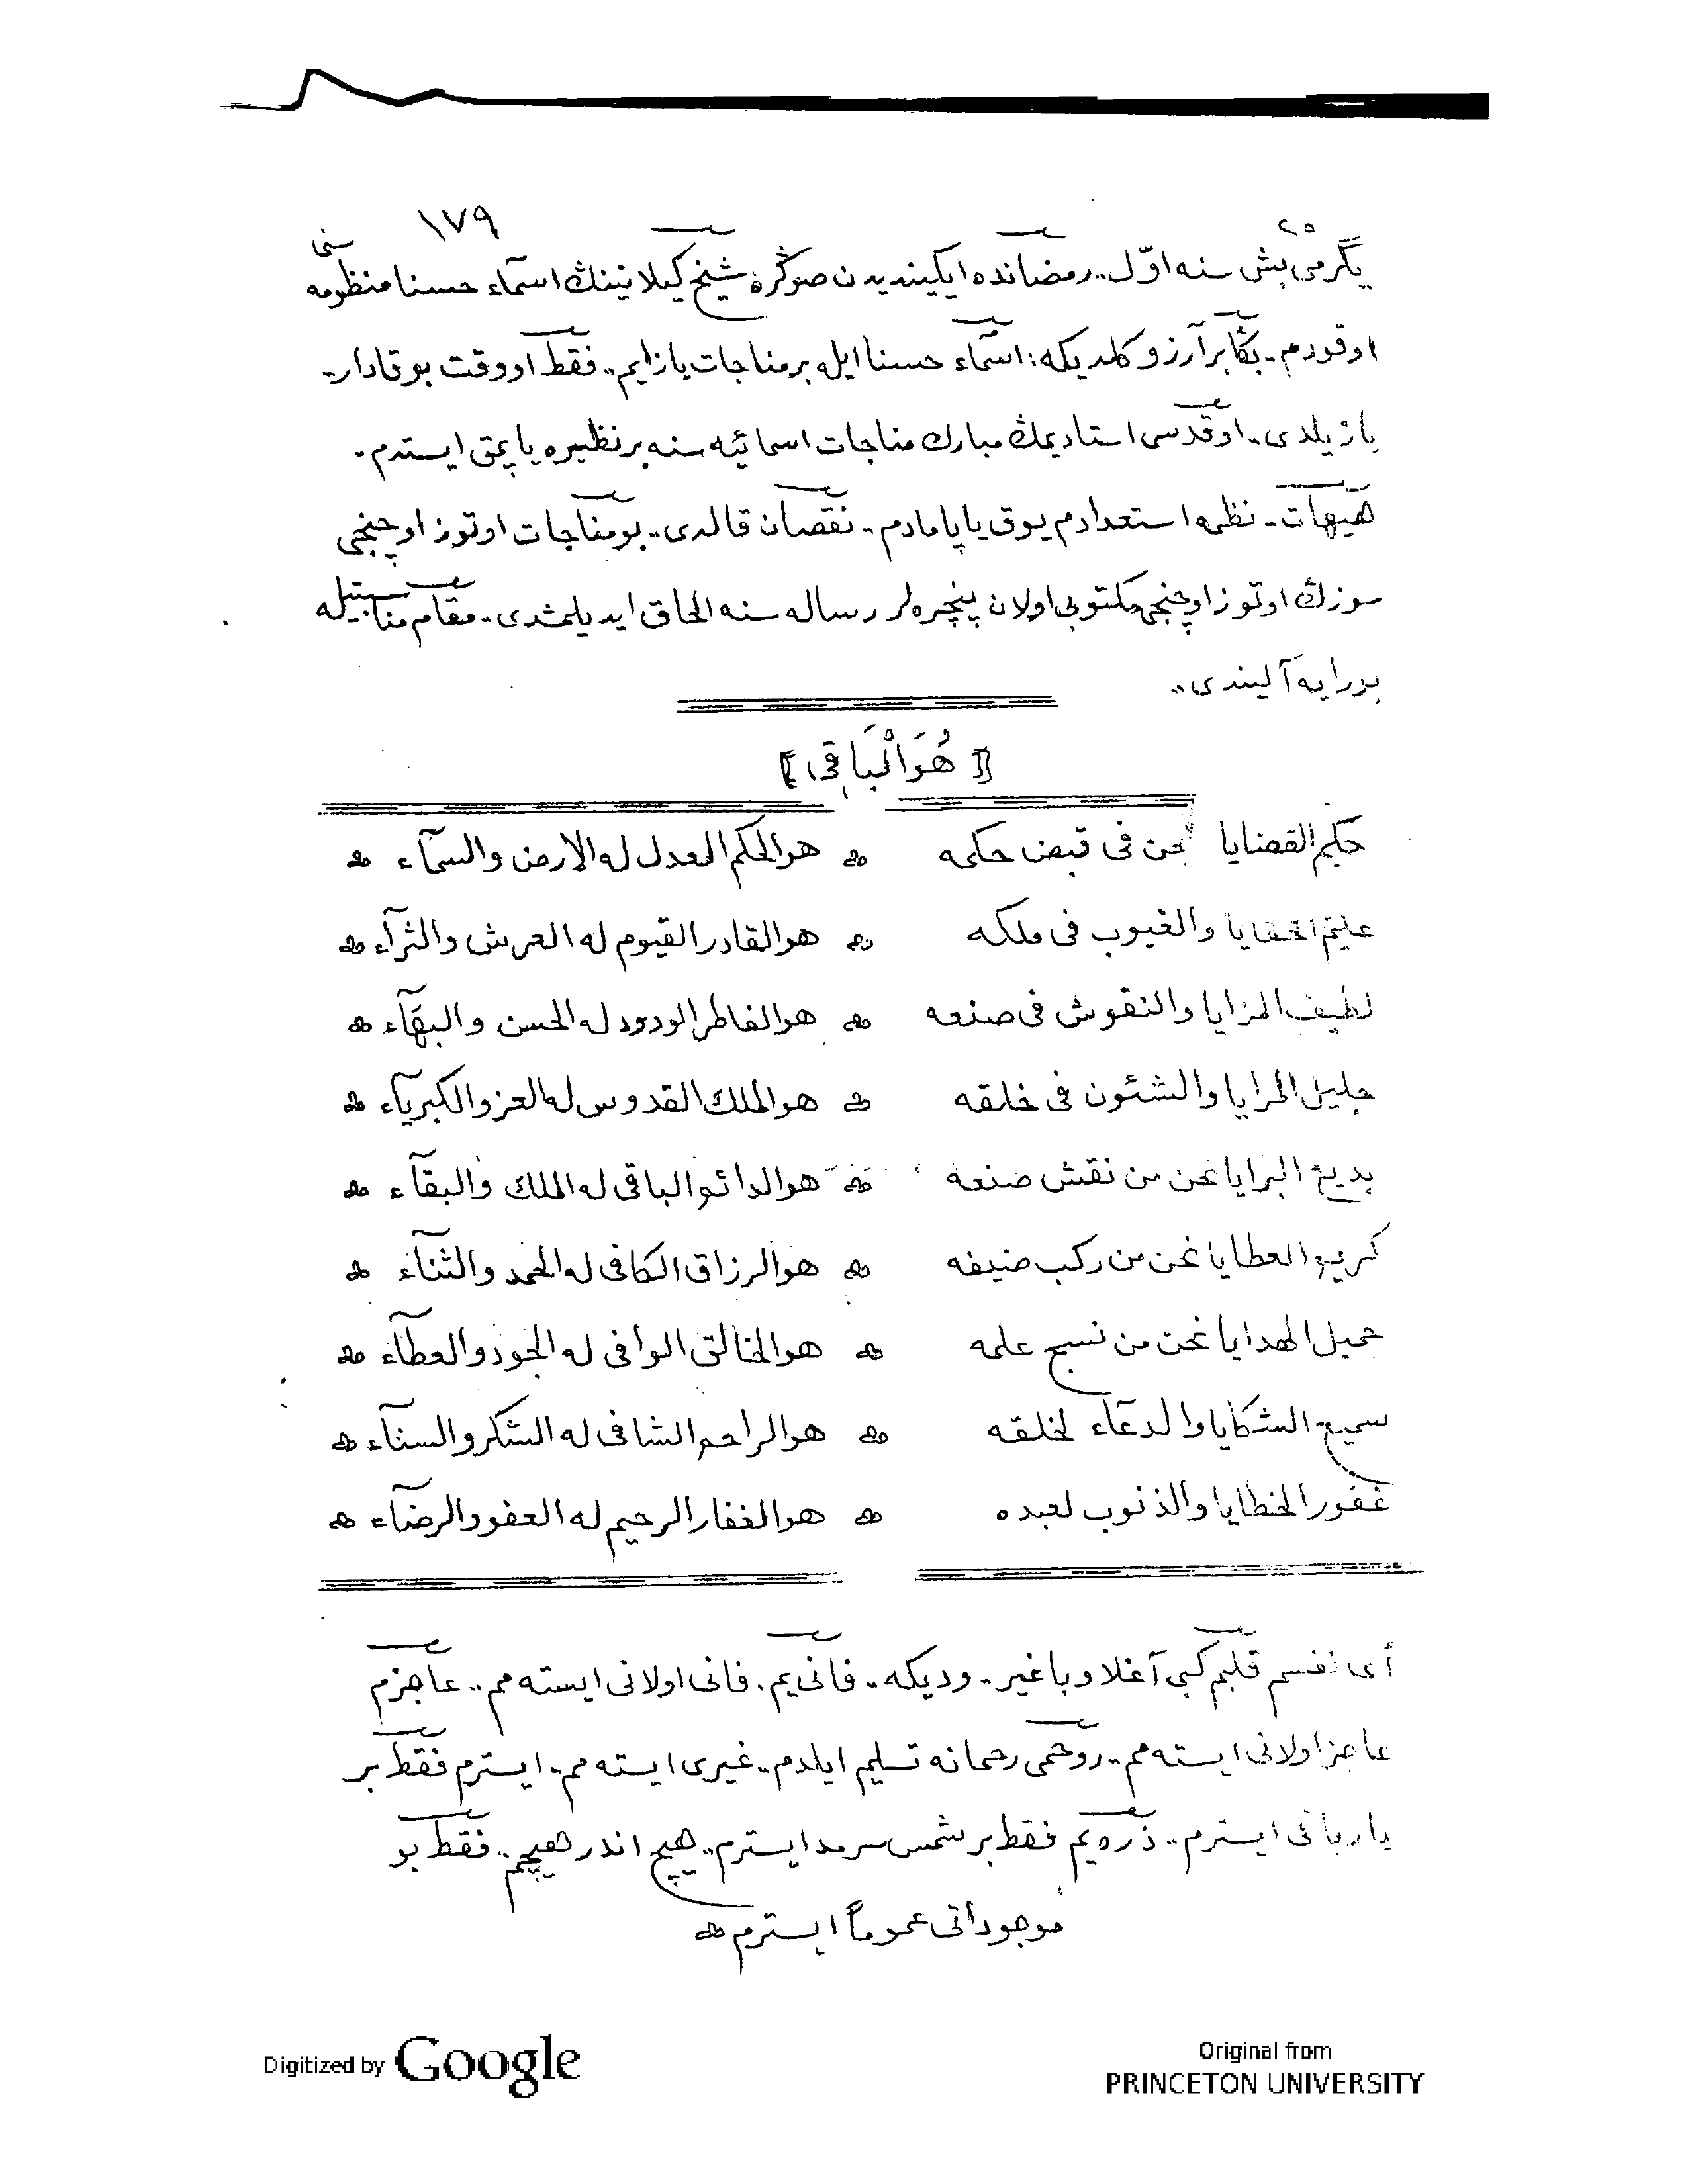 ١٧٩
٢٥
يگرمى بش سنه اوّل.. رمضانده ايكينديدن صوڭره شيخ گيلانينڭ اسمآء حسنا منظومه سنى
اوقودم. بڭا بر آرزو كلديكه: اسمآء حسنا ايله بر مناجات يازايم.. فقط او وقت بو قادار
يازيلدى. او قدسى استاديمڭ مبارك مناجات اسمائيه سنه بر نظيره ياپمق ايستدم.
هيهات. نظمه استعدادم يوق ياپامادم. نقصان قالدى.. بو مناجات اوتوز اوچنجى
سوزڭ اوتوز اوچنجى مكتوبى اولان پنجره لر رساله سنه الحاق ايديلمشدى. مقام مناسبتيله
بورايه آليندى..
[ هُوَ الْبَاقِى ]
حكيم القضايا نحن فى قبض حكمه ۞ هو الحكم العدل له الارض والسمآء ۞
عليم الخفايا والغيوب فى ملكه ۞ هو القادر القيوم له العرش والثرآء ۞
لطيف المزايا والنقوش فى صنعه ۞ هو الفاطر الودود له الحسن والبهآء ۞
جليل المرايا والشئون فى خلقه ۞ هو الملك القدوس له العز والكبريآء ۞
بديع البرايا نحن من نقش صنعه ۞ هو الدائم الباقى له الملك والبقآء ۞
كريم العطايا نحن من ركب ضيفه ۞ هو الرزاق الكافى له الحمد والثنآء ۞
جميل الهدايا نحن من نسج علمه ۞ هو الخالق الوافى له الجود والعطآء ۞
سميع الشكايا والدعآء لخلقه ۞ هو الراحم الشافى له الشكر والسنآء ۞
غفور الخطايا والذنوب لعبده ۞ هو الغفار الرحيم له العفو والرضآء ۞
أى نفسم قلبم كبى آغلا و باغير. و ديكه.. فانى يم. فانى اولانى ايسته مم.. عاجزم
عاجز اولانى ايسته مم.. روحمى رحمانه تسليم ايلدم.. غيرى ايسته مم. ايسترم فقط بر
يار باقى ايسترم.. ذره يم فقط بر شمس سرمد ايسترم.. هيچ اندر هيچم.. فقط بو
موجوداتى عموماً ايسترم ۞
Digitized by Google
Original from
PRINCETON UNIVERSITY